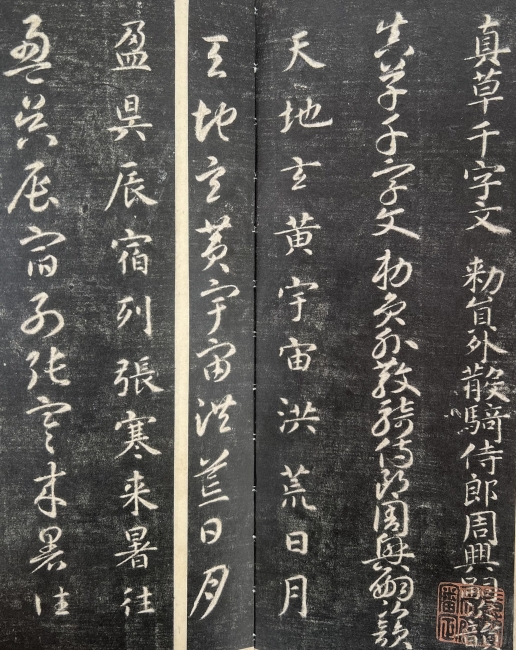 真草千字文 勅員外散騎侍郎周興嗣韻
真草千字文 勅員外散騎侍郎周興嗣韻
天地玄黄宇宙洪荒日月
天地玄黄宇宙洪荒日月
盈昃辰宿列張寒来暑往
盈昃辰宿列張寒来暑往